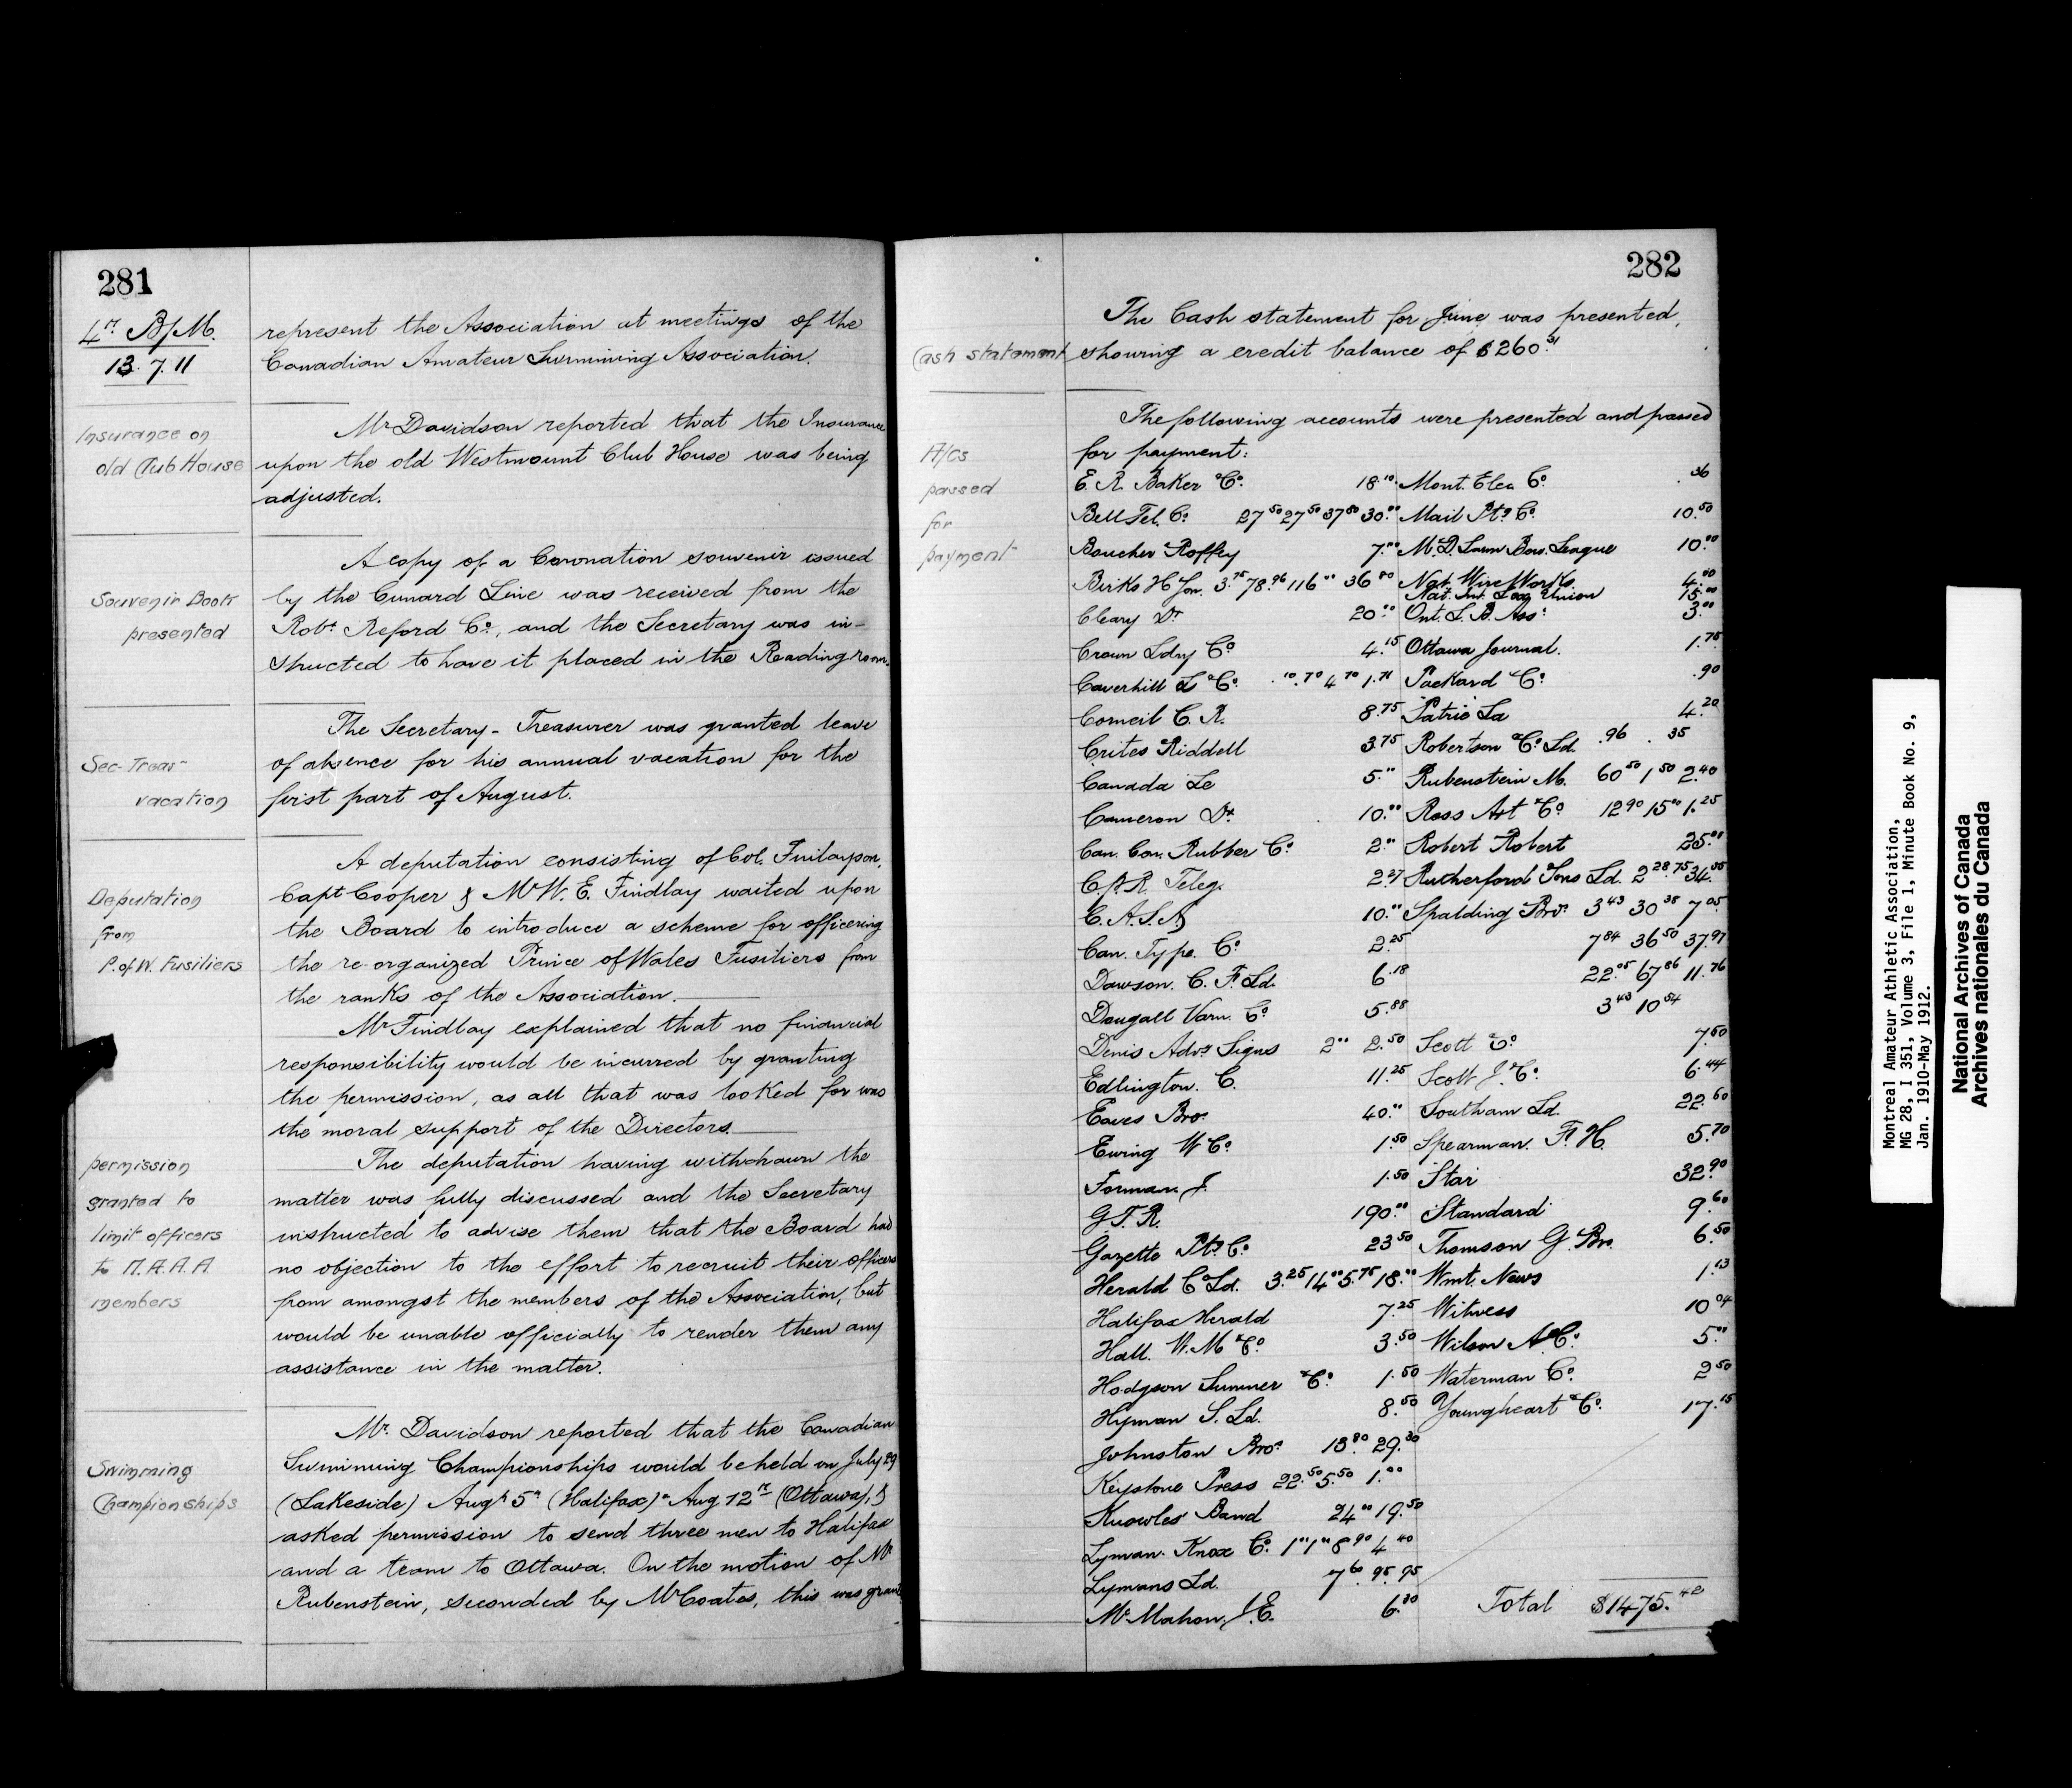 281
4th B/M.
13.7.11
represent the Association at meetings of the
Canadian Amateur Swimming Association.
Insurance on
old Club House
Mr Davidson reported that the Insurance
upon the old Westmount Club House was being
adjusted.
Souvenir Book
presented
A copy of a Coronation souvenir issued
by the Cunard Line was received from the
Robt Reford Co., and the Secretary was in-
structed to have it placed in the Reading room.
Sec-Treasr
vacation
The Secretary-Treasurer was granted leave
of absence for his annual vacation for the
first part of August.
Deputation
from
P. of W. Fusiliers
A deputation consisting of Col. Finlayson,
Capt Cooper & Mr W. E. Findlay waited upon
the Board to introduce a scheme for officering
the re-organized Prince of Wales Fusiliers from
the ranks of the Association.
Mr Findlay explained that no financial
responsibility would be incurred by granting
the permission, as all that was looked for was
the moral support of the Directors.
permission
granted to
limit officers
to M.A.A.A.
members
The deputation having withdrawn the
matter was fully discussed and the Secretary
instructed to advise them that the Board had
no objection to the effort to recruit their officers
from amongst the members of the Association, but
would be unable officially to render them any
assistance in the matter.
Swimming
Championships
Mr. Davidson reported that the Canadian
Swimming Championships would be held on July 29
(Lakeside) Augt 5th (Halifax) Aug. 12th (Ottawa), &
asked permission to send three men to Halifax
and a team to Ottawa. On the motion of Mr
Rubenstein, seconded by Mr Coates, this was
282
Cash statement
The Cash statement for June was presented,
showing a credit balance of $260.31
A/cs
passed
for
payment
The following accounts were presented and passed
for payment:
E. R. Baker & Co. 18.10
Bell Tel. Co. 27.50 27.50 37.80 30.00
Boucher Roffey 7.00
Birks H & Son. 3.75 78.96 116.00 36.80
Cleary Dr 20.00
Crown Ldry Co 4.15
Caverhill L & Co. .10 .70 4.70 1.71
Corneil C. R. 8.75
Crites Riddell 3.75
Canada Le 5.00
Cameron Dr 10.00
Can. Con. Rubber Co. 2.00
C.P.R. Teleg. 2.27
C.A.S.A 10.00
Can. Type. Co 2.25
Dawson. C. F. Ld. 6.18
Dougall Varn. Co. 5.88
Denis Advg Signs 2.00 2.50
Edlington. C. 11.25
Eaves Bros. 40.00
Ewing W & Co. 1.50
Forman. J. 1.50
G.T.R. 190.00
Gazette Ptg Co. 23.50
Herald Co Ld. 3.25 14.00 5.75 18.00
Halifax Herald 7.25
Hall. W. M & Co. 3.50
Hodgson Sumner & Co. 1.50
Hyman S. Ld. 8.50
Johnston Bros. 13.80 29.30
Keystone Press 22.50 5.50 1.00
Knowles' Band 24.00 19.50
Lyman. Knox Co. 1.00 1.00 8.90 4.40
Lymans Ld. 7.60 .95 .95
McMahon, J. E. 6.30
Mont. Elec. Co. .36
Mail Ptg Co. 10.50
M. D. Lawn Bow. League 10.00
Nat. Wire Works. 4.00
Nat. Int. Lax Union 15.00
Ont. L. B. Ass: 3.00
Ottawa Journal. 1.75
Packard Co. .90
Patrie La 4.20
Robertson & Co. Ld. .96 .35
Rubenstein M. 60.50 1.50 2.40
Ross Art & Co 12.90 15.00 1.25
Robert & Robert 25.00
Rutherford Sons Ld. 2.28 .75 34.55
Spalding Bros. 3.43 30.38 7.05
7.84 36.50 37.97
22.05 67.86 11.76
3.43 10.54
Scott & Co 7.50
Scott J. & Co. 6.44
Southam Ld. 22.60
Spearman. F. H. 5.70
Star 32.90
Standard 9.60
Thomson G. Bro. 6.50
Wmt. News 1.13
Witness 10.04
Wilson A & Co. 5.00
Waterman Co. 2.50
Youngheart & Co. 17.15
Total $1475.42
Montreal Amateur Athletic Association,
MG 28, I 351, Volume 3, File 1, Minute Book No. 9,
Jan. 1910-May 1912.
National Archives of Canada
Archives nationales du Canada